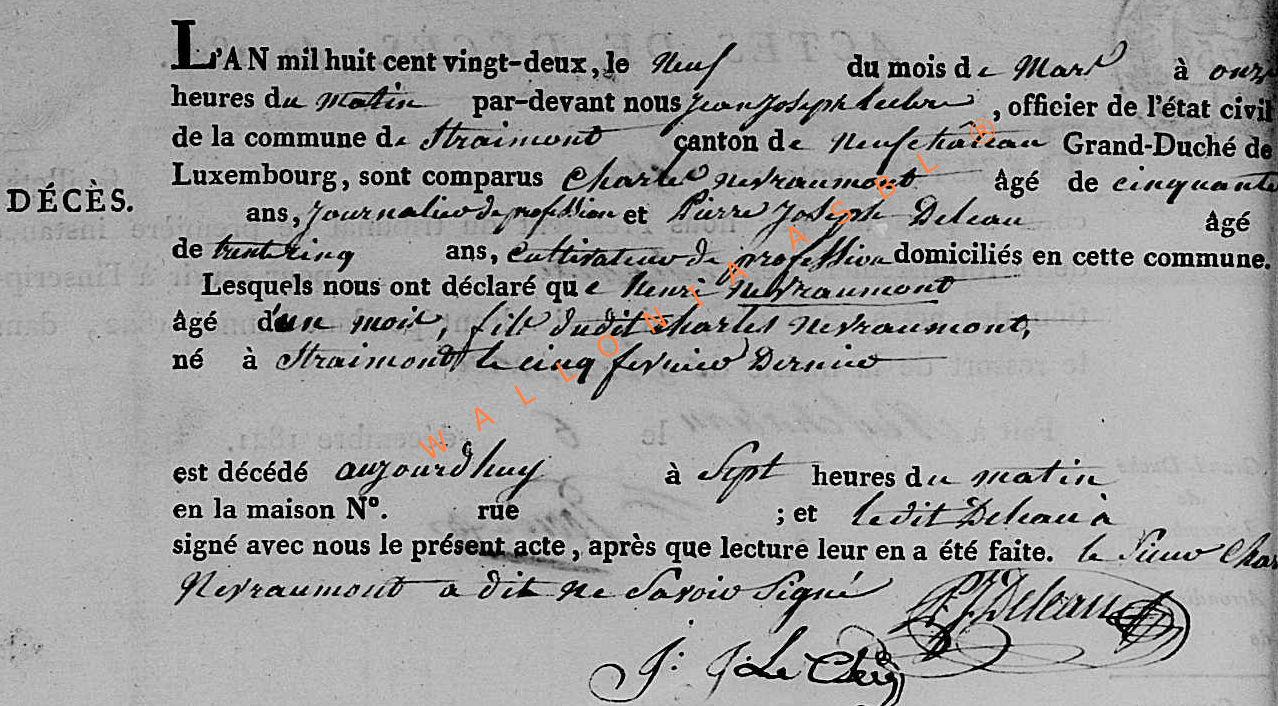 L'AN mil huit cent vingt-deux, le Neuf du mois de Mars à onze
heures du matin par-devant nous Jean Joseph , officier de l'état civil
de la commune de Straimont canton de Neufchâteau Grand-Duché de
Luxembourg, sont comparus Charles Nevraumont âgé de cinquante
DÉCÈS.
ans, Journalier de profession et Pierre Joseph Deleau âgé
de trente cinq ans, cultivateur de profession domiciliés en cette commune.
Lesquels nous ont déclaré que Henri Nevraumont
âgé d'un mois, fils dudit Charles Nevraumont,
né à Straimont le cinq fevrier Dernier
est décédé aujourdhuy à Sept heures du matin
en la maison N°. rue ; et ledit Deleau à
signé avec nous le présent acte, après que lecture leur en a été faite. le Sieur Char
Nevraumont a dit ne Savoir Signé
P J Deleau
J: J: Le Clerq
WALLONIA ASBL ®